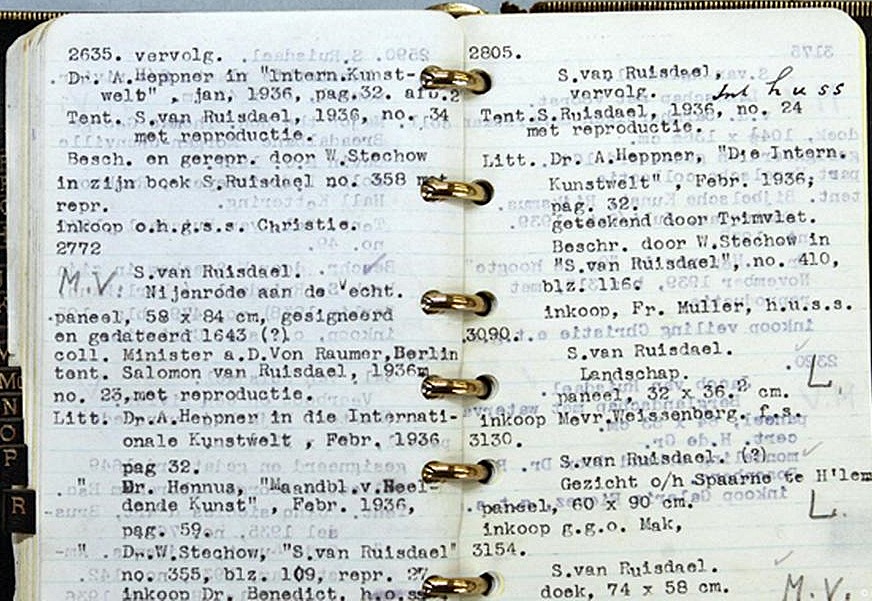 2635. vervolg.
Dr. A.Heppner in "Intern.Kunst-
welt" , jan, 1936, pag.32. afb.2
Tent. S.van Ruisdael, 1936, no. 34
met reproductie.
Besch. en gerepr. door W.Stechow
in zijn boek S.Ruisdael no. 358 met
repr.
inkoop o.h.g.s.s. Christie.
2772
S.van Ruisdael.
M.V. Nijenrode aan de Vecht.
paneel, 58 x 84 cm, gesigneerd
en gedateerd 1643 (?)
coll. Minister a.D.Von Raumer,Berlin
tent. Salomon van Ruisdael, 1936,
no. 23,met reproductie.
Litt. Dr.A.Heppner in die Internati-
onale Kunstwelt , Febr. 1936
pag 32.
" Dr. Hennus, "Maandbl.v.Beel-
dende Kunst" , Febr. 1936,
pag. 59.
" Dr.W.Stechow, "S.van Ruisdael"
no. 355, blz. 109, repr. 27
inkoop Dr. Benedict, h.o.ss
2805.
S.van Ruisdael,
vervolg.
Int h u ss
Tent.S.Ruisdael, 1936, no. 24
met reproductie.
Litt. Dr. A.Heppner, "Die Intern.
Kunstwelt" , Febr. 1936,
pag. 32.
geteekend door Trimvlet.
Beschr. door W.Stechow in
"S.van Ruisdael", no. 410,
blz. 116d
inkoop, Fr. Muller, h.u.s.s.
3090.
S.van Ruisdael.
Landschap. L.
paneel, 32 x 36.2 cm.
inkoop Mevr.Weissenberg. f.s.
3130.
S.van Ruisdael. (?)
Gezicht o/h Spaarne te H'lem
paneel, 60 x 90 cm. L.
inkoop g.g.o. Mak,
3154.
S.van Ruisdael.
doek, 74 x 58 cm. M.V.
M
N
O
P
R